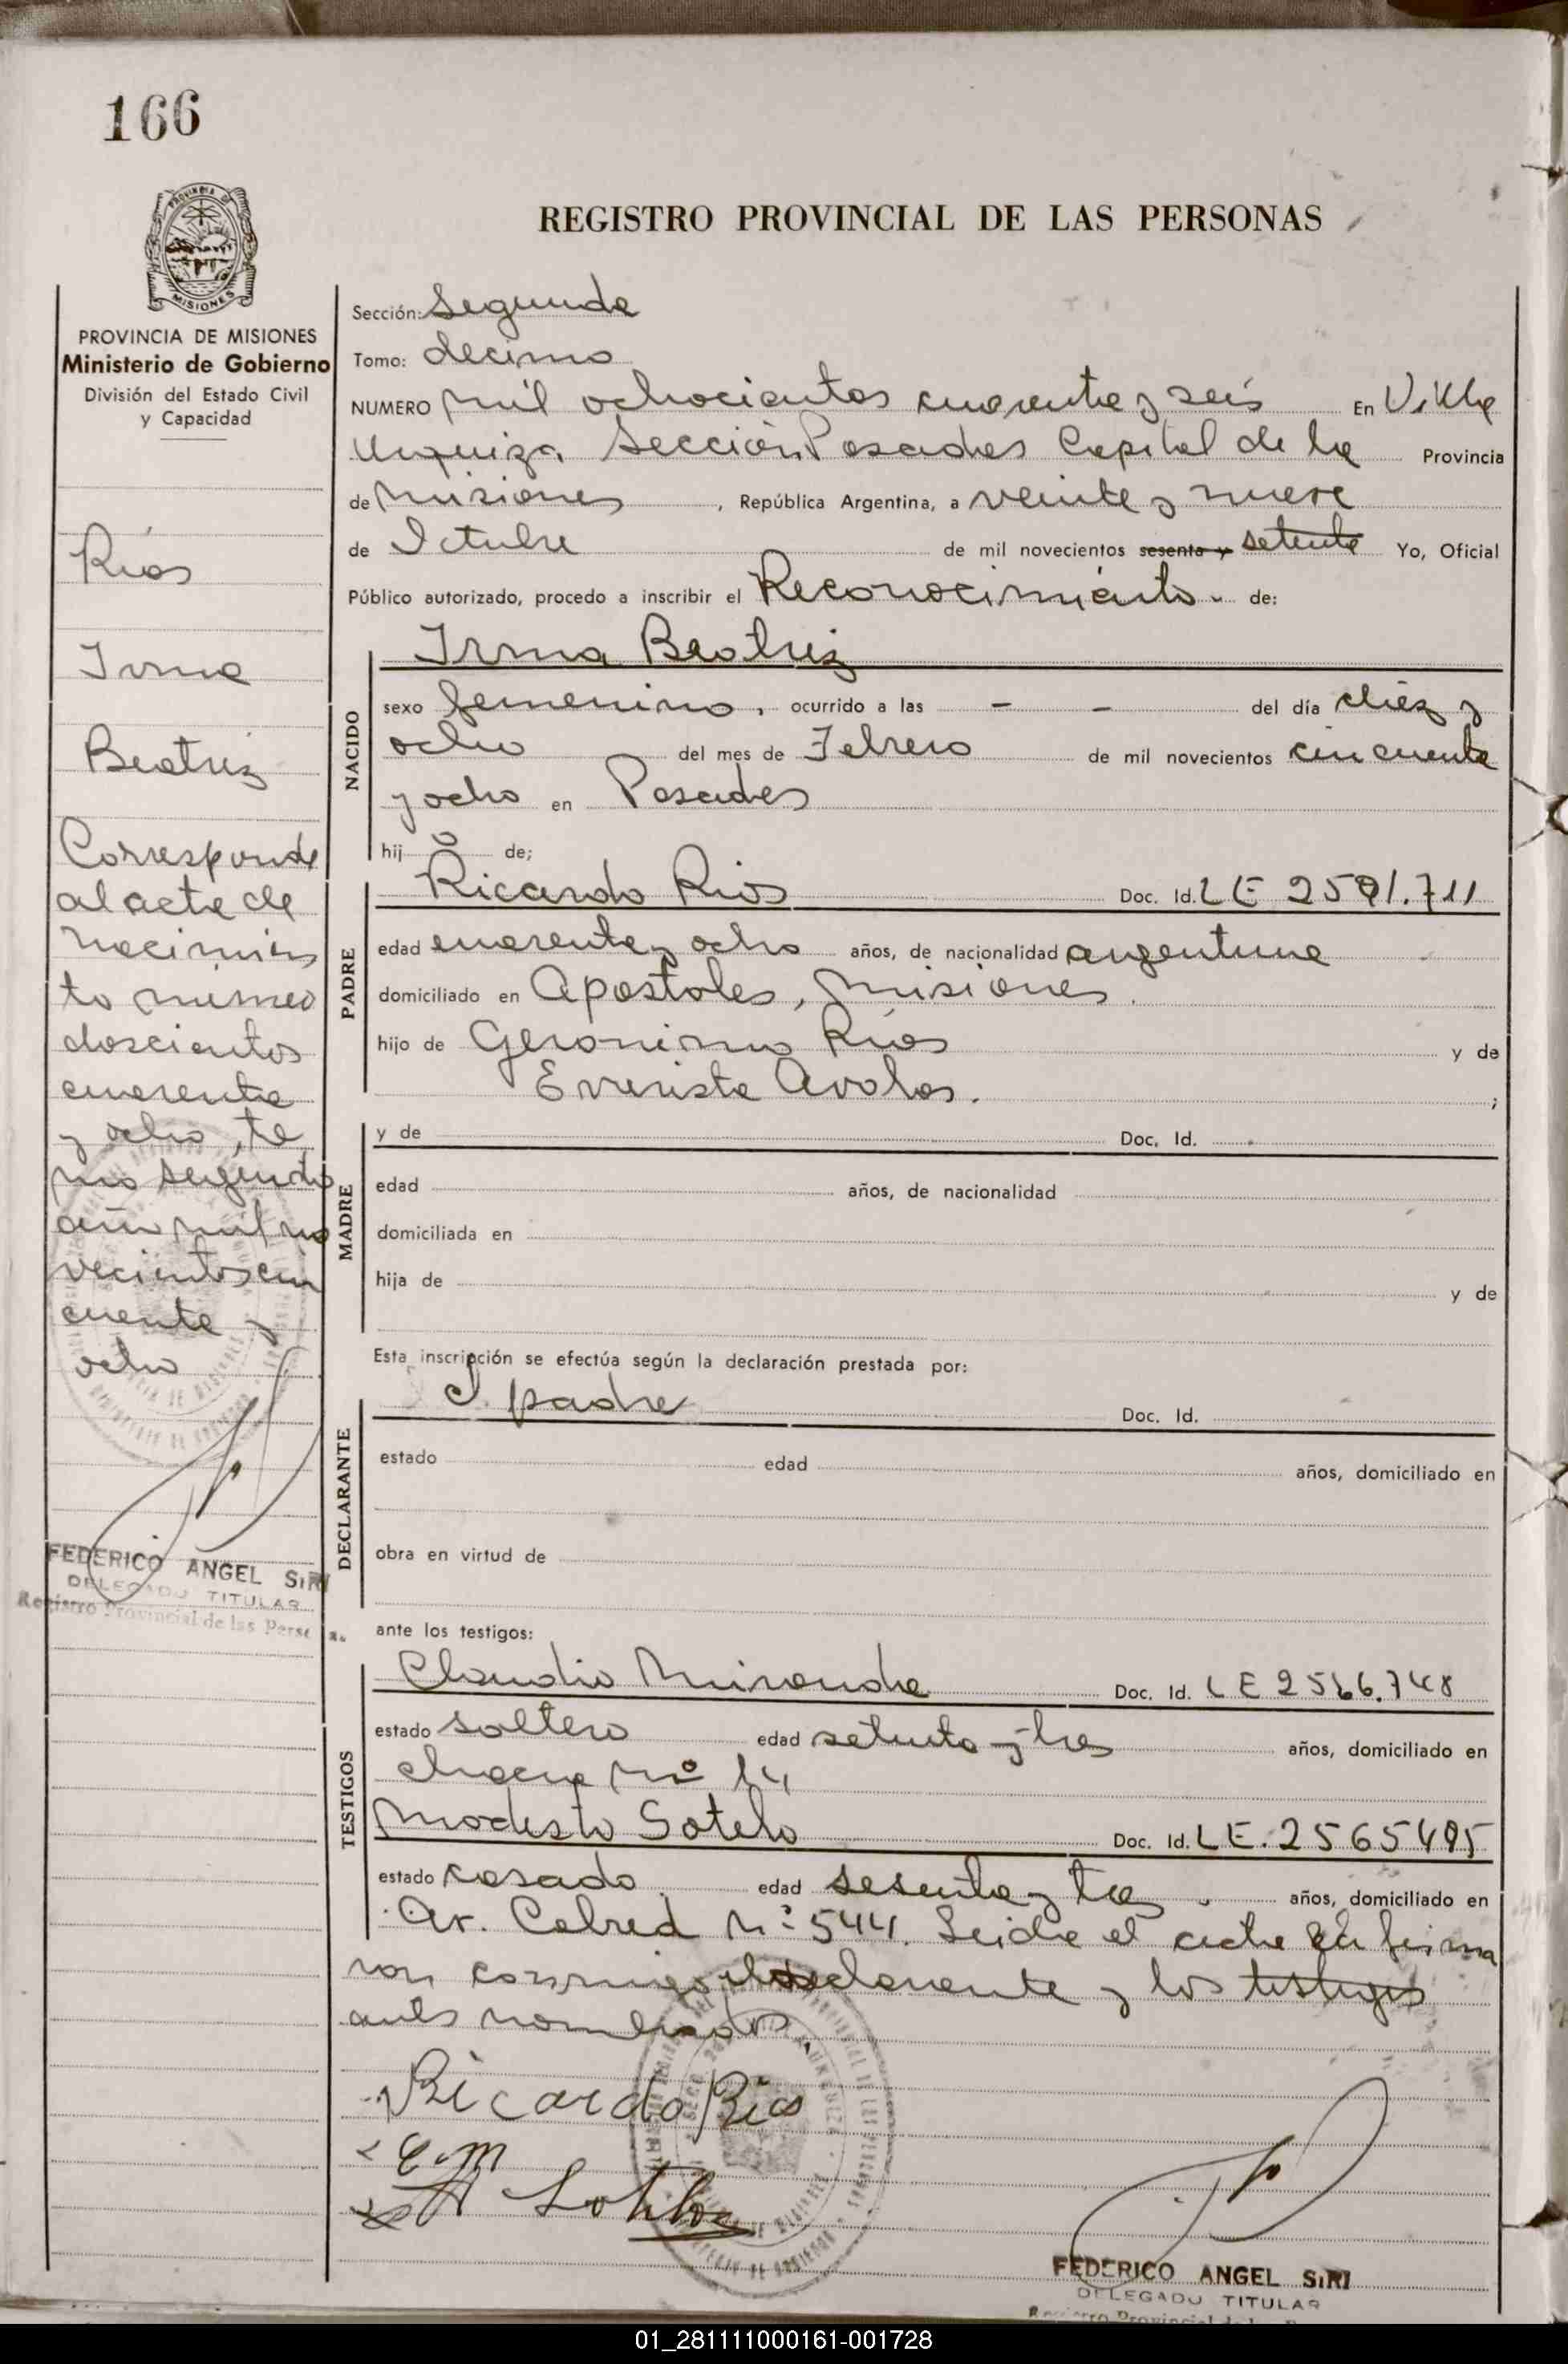 166
PROVINCIA DE
MISIONES
PROVINCIA DE MISIONES
Ministerio de Gobierno
División del Estado Civil
y Capacidad
Ríos
Irma
Beatriz
Corresponde
al acta de
nacimien
to número
doscientos
cuarenta
y ocho, to
mo segundo
año mil no
vecientos cin
cuenta y
ocho
FEDERICO ANGEL SIRI
DELEGADO TITULAR
Registro Provincial de las Perso
REGISTRO PROVINCIAL DE LAS PERSONAS
Sección: Segunda
Tomo: decimo
NUMERO mil ochocientos cuarenta y seis En Villa
Urquiza Sección Posadas Capital de la Provincia
de Misiones, República Argentina, a veinte y nueve
de Octubre de mil novecientos sesenta y setenta Yo, Oficial
Público autorizado, procedo a inscribir el Reconocimiento de:
Irma Beatriz
NACIDO
sexo femenino, ocurrido a las - - del día diez y
ocho del mes de Febrero de mil novecientos cincuenta
y ocho en Posadas
hij o de;
PADRE
Ricardo Rios Doc. Id. LE 2591.711
edad cuarenta y ocho años, de nacionalidad argentina
domiciliado en Apostoles, Misiones.
hijo de Geronimo Ríos y de
Evarista Avalos. ;
MADRE
y de Doc. Id.
edad años, de nacionalidad
domiciliada en
hija de y de
Esta inscripción se efectúa según la declaración prestada por:
DECLARANTE
padre Doc. Id.
estado edad años, domiciliado en
obra en virtud de
ante los testigos:
TESTIGOS
Claudio Miranda Doc. Id. LE 2566.748
estado soltero edad setenta y tres años, domiciliado en
chacra Nº 14
Modesto Sotelo Doc. Id. LE. 2565495
estado casado edad sesenta y tres años, domiciliado en
Av. Cabred Nº 544. Leida el acta la firma
ron conmigo declarante y los testigos
antes nombrados
Ricardo Rios
C.M
Sotelo
FEDERICO ANGEL SIRI
DELEGADO TITULAR
01_281111000161-001728